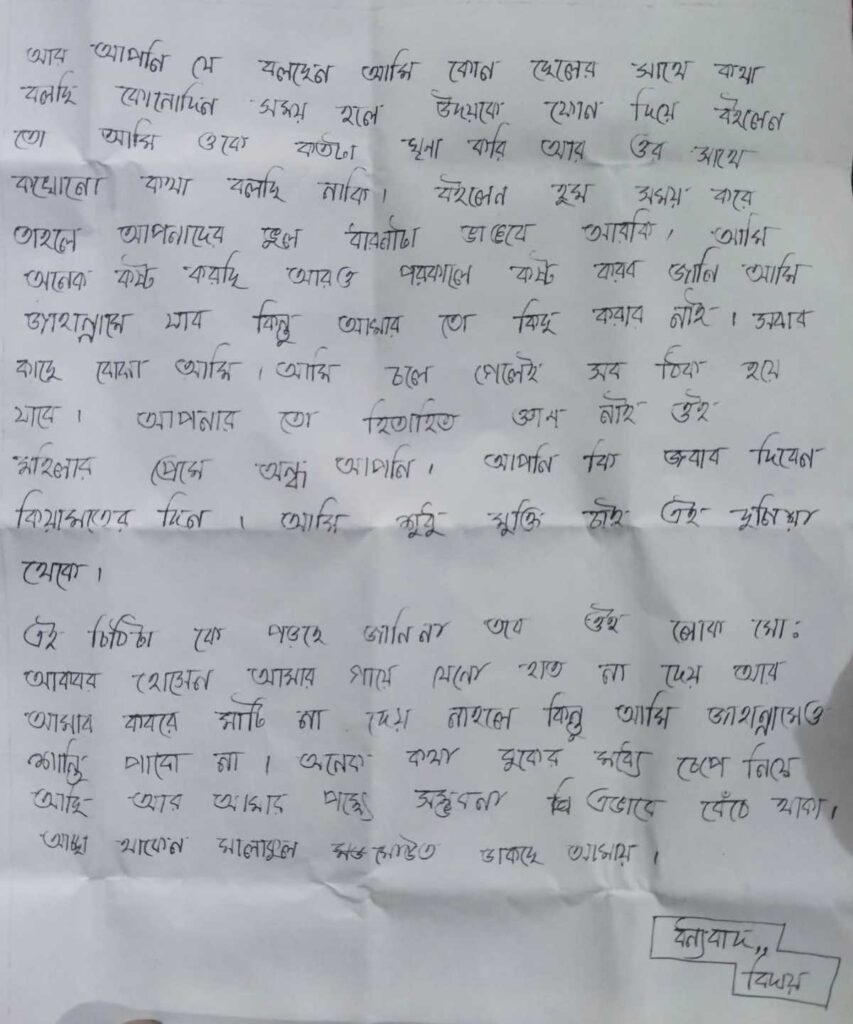 আর আপনি যে বলছেন আমি কোন ছেলের সাথে কথা
বলছি কোনোদিন সময় হলে উদয়কে ফোন দিয়ে বইলেন
তো আমি ওকে কতটা ঘৃনা করি আর ওর সাথে
কখোনো কথা বলছি নাকি। বইলেন হুম সময় করে
তাহলে আপনাদের ভুল ধারনাটা ভাঙবে আরকি। আমি
অনেক কষ্ট করছি আরও পরকালে কষ্ট করব জানি আমি
জাহান্নামে যাব কিন্তু আমার তো কিছু করার নাই। সবার
কাছে বোঝা আমি। আমি চলে গেলেই সব ঠিক হয়ে
যাবে। আপনার তো হিতাহিত জ্ঞান নাই ওই
মহিলার প্রেমে অন্ধ আপনি। আপনি কি জবাব দিবেন
কিয়ামতের দিন। আমি শুধু মুক্তি চাই এই দুনিয়া
থেকে।
এই চিঠিটা কে পড়ছে জানিনা তবে ওই লোক মো:
আকবর হোসেন আমার গায়ে যেনো হাত না দেয় আর
আমার কবরে মাটি না দেয় নাহলে কিন্তু আমি জাহান্নামেও
শান্তি পাবো না। অনেক কথা বুকের মধ্যে চেপে নিয়ে
আছি আর আমার পক্ষে সম্ভবনা এভাবে বেঁচে থাকা।
আচ্ছা থাকেন মালাকুল মউত ডাকছে আমায়।
ধন্যবাদ,,
বিদায়